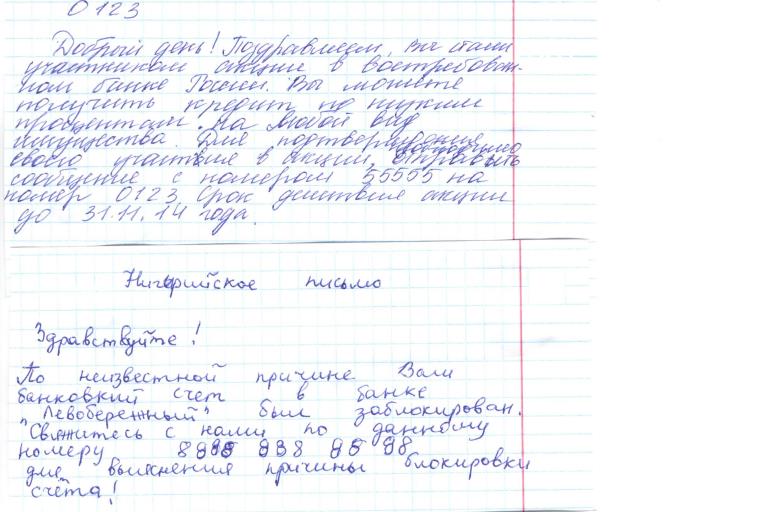 0123
Добрый день! Поздравляем, Вы стали
участником акции в востребован-
ном банке России. Вы можете
получить кредит по низким
процентам на любой вид
имущества. Для подтверждения
своего участие в акции, отправить
сообщение с номером 55555 на
номер 0123. Срок действия акции
до 31.11.14 года.
Нигерийское письмо
Здравствуйте!
По неизвестной причине Ваш
банковский счет в банке
"Левобережный" был заблокирован.
Свяжитесь с нами по данному
номеру
для выяснения причины блокировки
счёта!